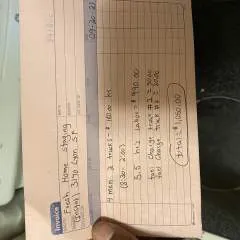 Invoice
09-20-23
Fresh Home Staging
3170 Lyon St
4 men 2 trucks = $180.00 hr
(8:30 - 2:00)
5.5 hrs labor = $990.00
fuel charge truck #1 = 30.00
fuel charge truck #2 = 30.00
total = $1,050.00